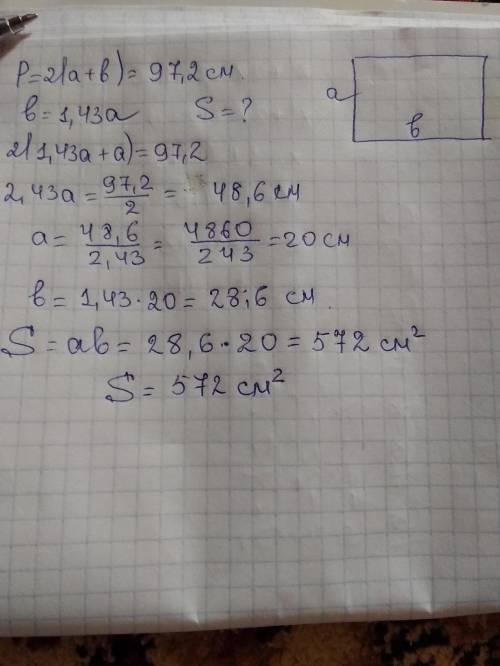 P=2(a+b)=97,2 см
b=1,43a S=?
a
b
2(1,43a+a)=97,2
2,43a=97,2/2=48,6 см
a=48,6/2,43=4860/243=20 см
b=1,43·20=28,6 см.
S=ab=28,6·20=572 см²
S=572 см²